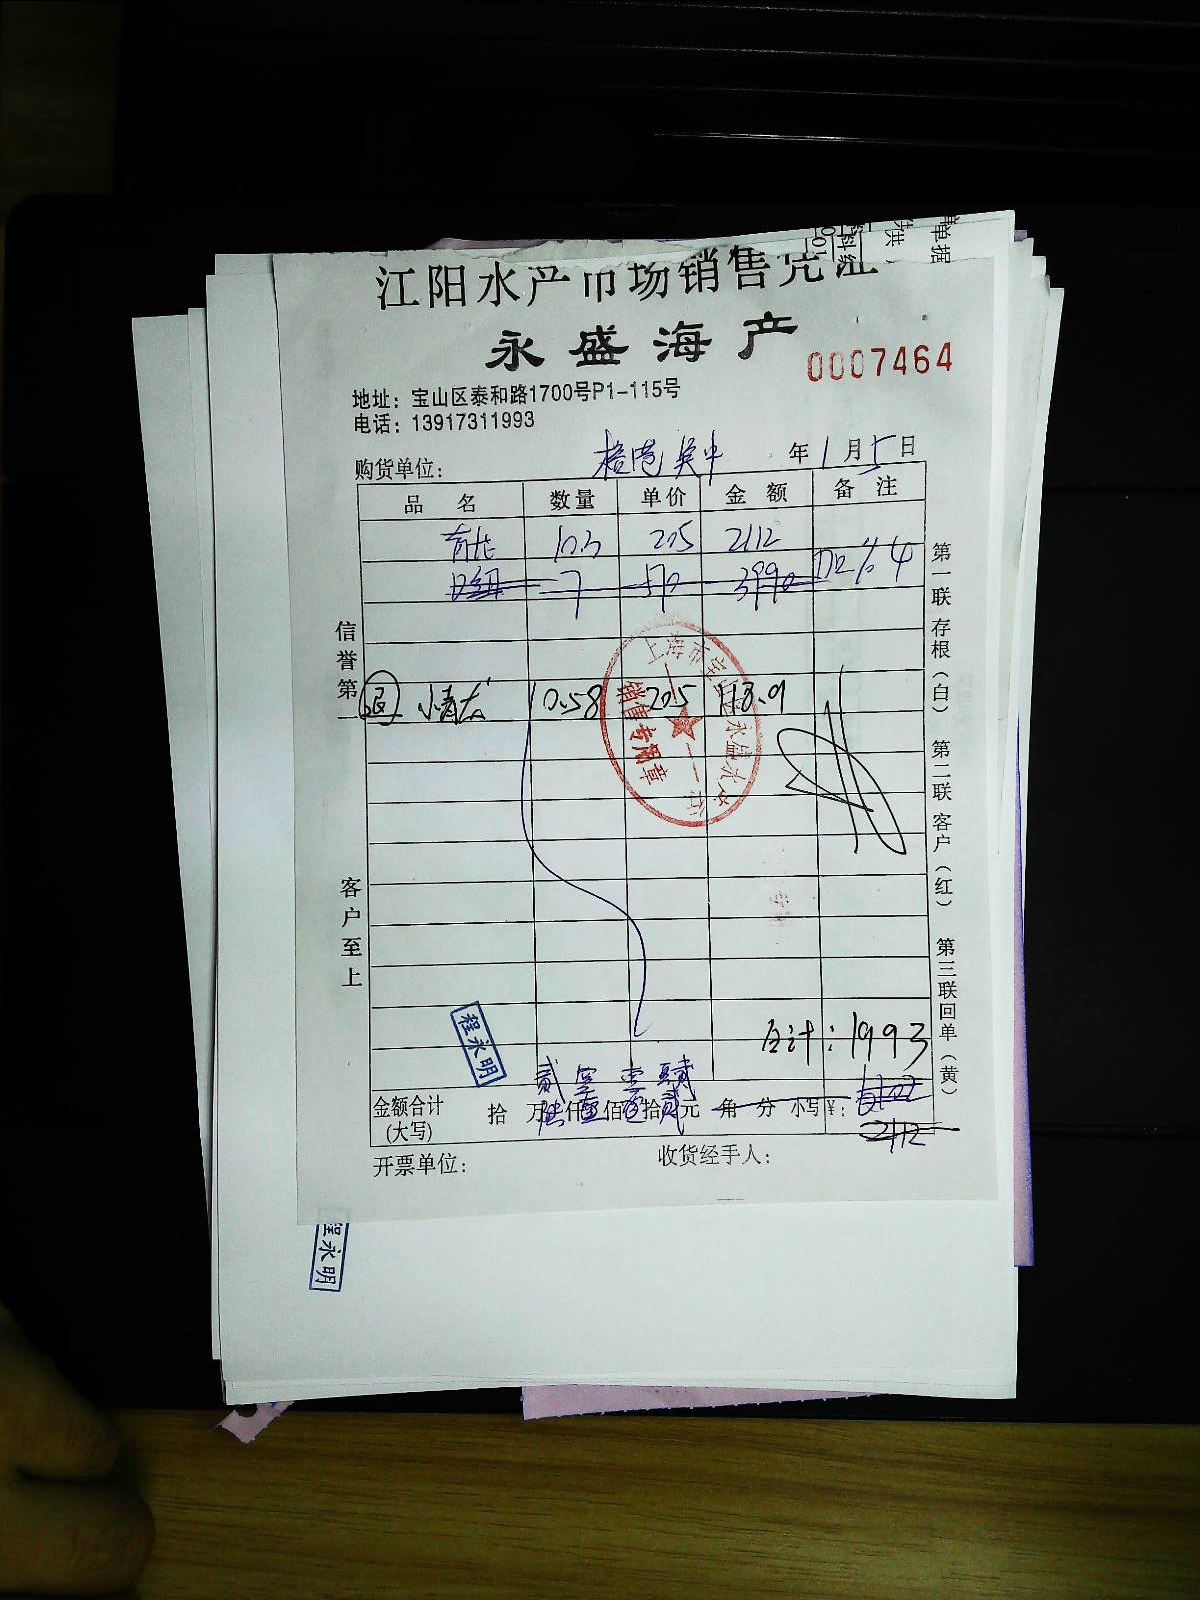 江阳水产市场销售凭证
永盛海产
0007464
地址：宝山区泰和路1700号P1-115号
电话：13917311993
购货单位： 吴中 年 1 月 5 日
品 名 数量 单价 金 额 备 注
青龙 10.3 205 2112
7 570 3990
退 小青龙 0.58 205 118.9
上海市宝山区永盛水产行
销售专用章
合计：1993
程永明
贰 壹
金额合计(大写) 拾 万 仟 佰 拾 贰 元 角 分 小写￥：
2112
开票单位： 收货经手人：
信誉第一
客户至上
第一联 存根（白） 第二联 客户（红） 第三联 回单（黄）
程永明
单据